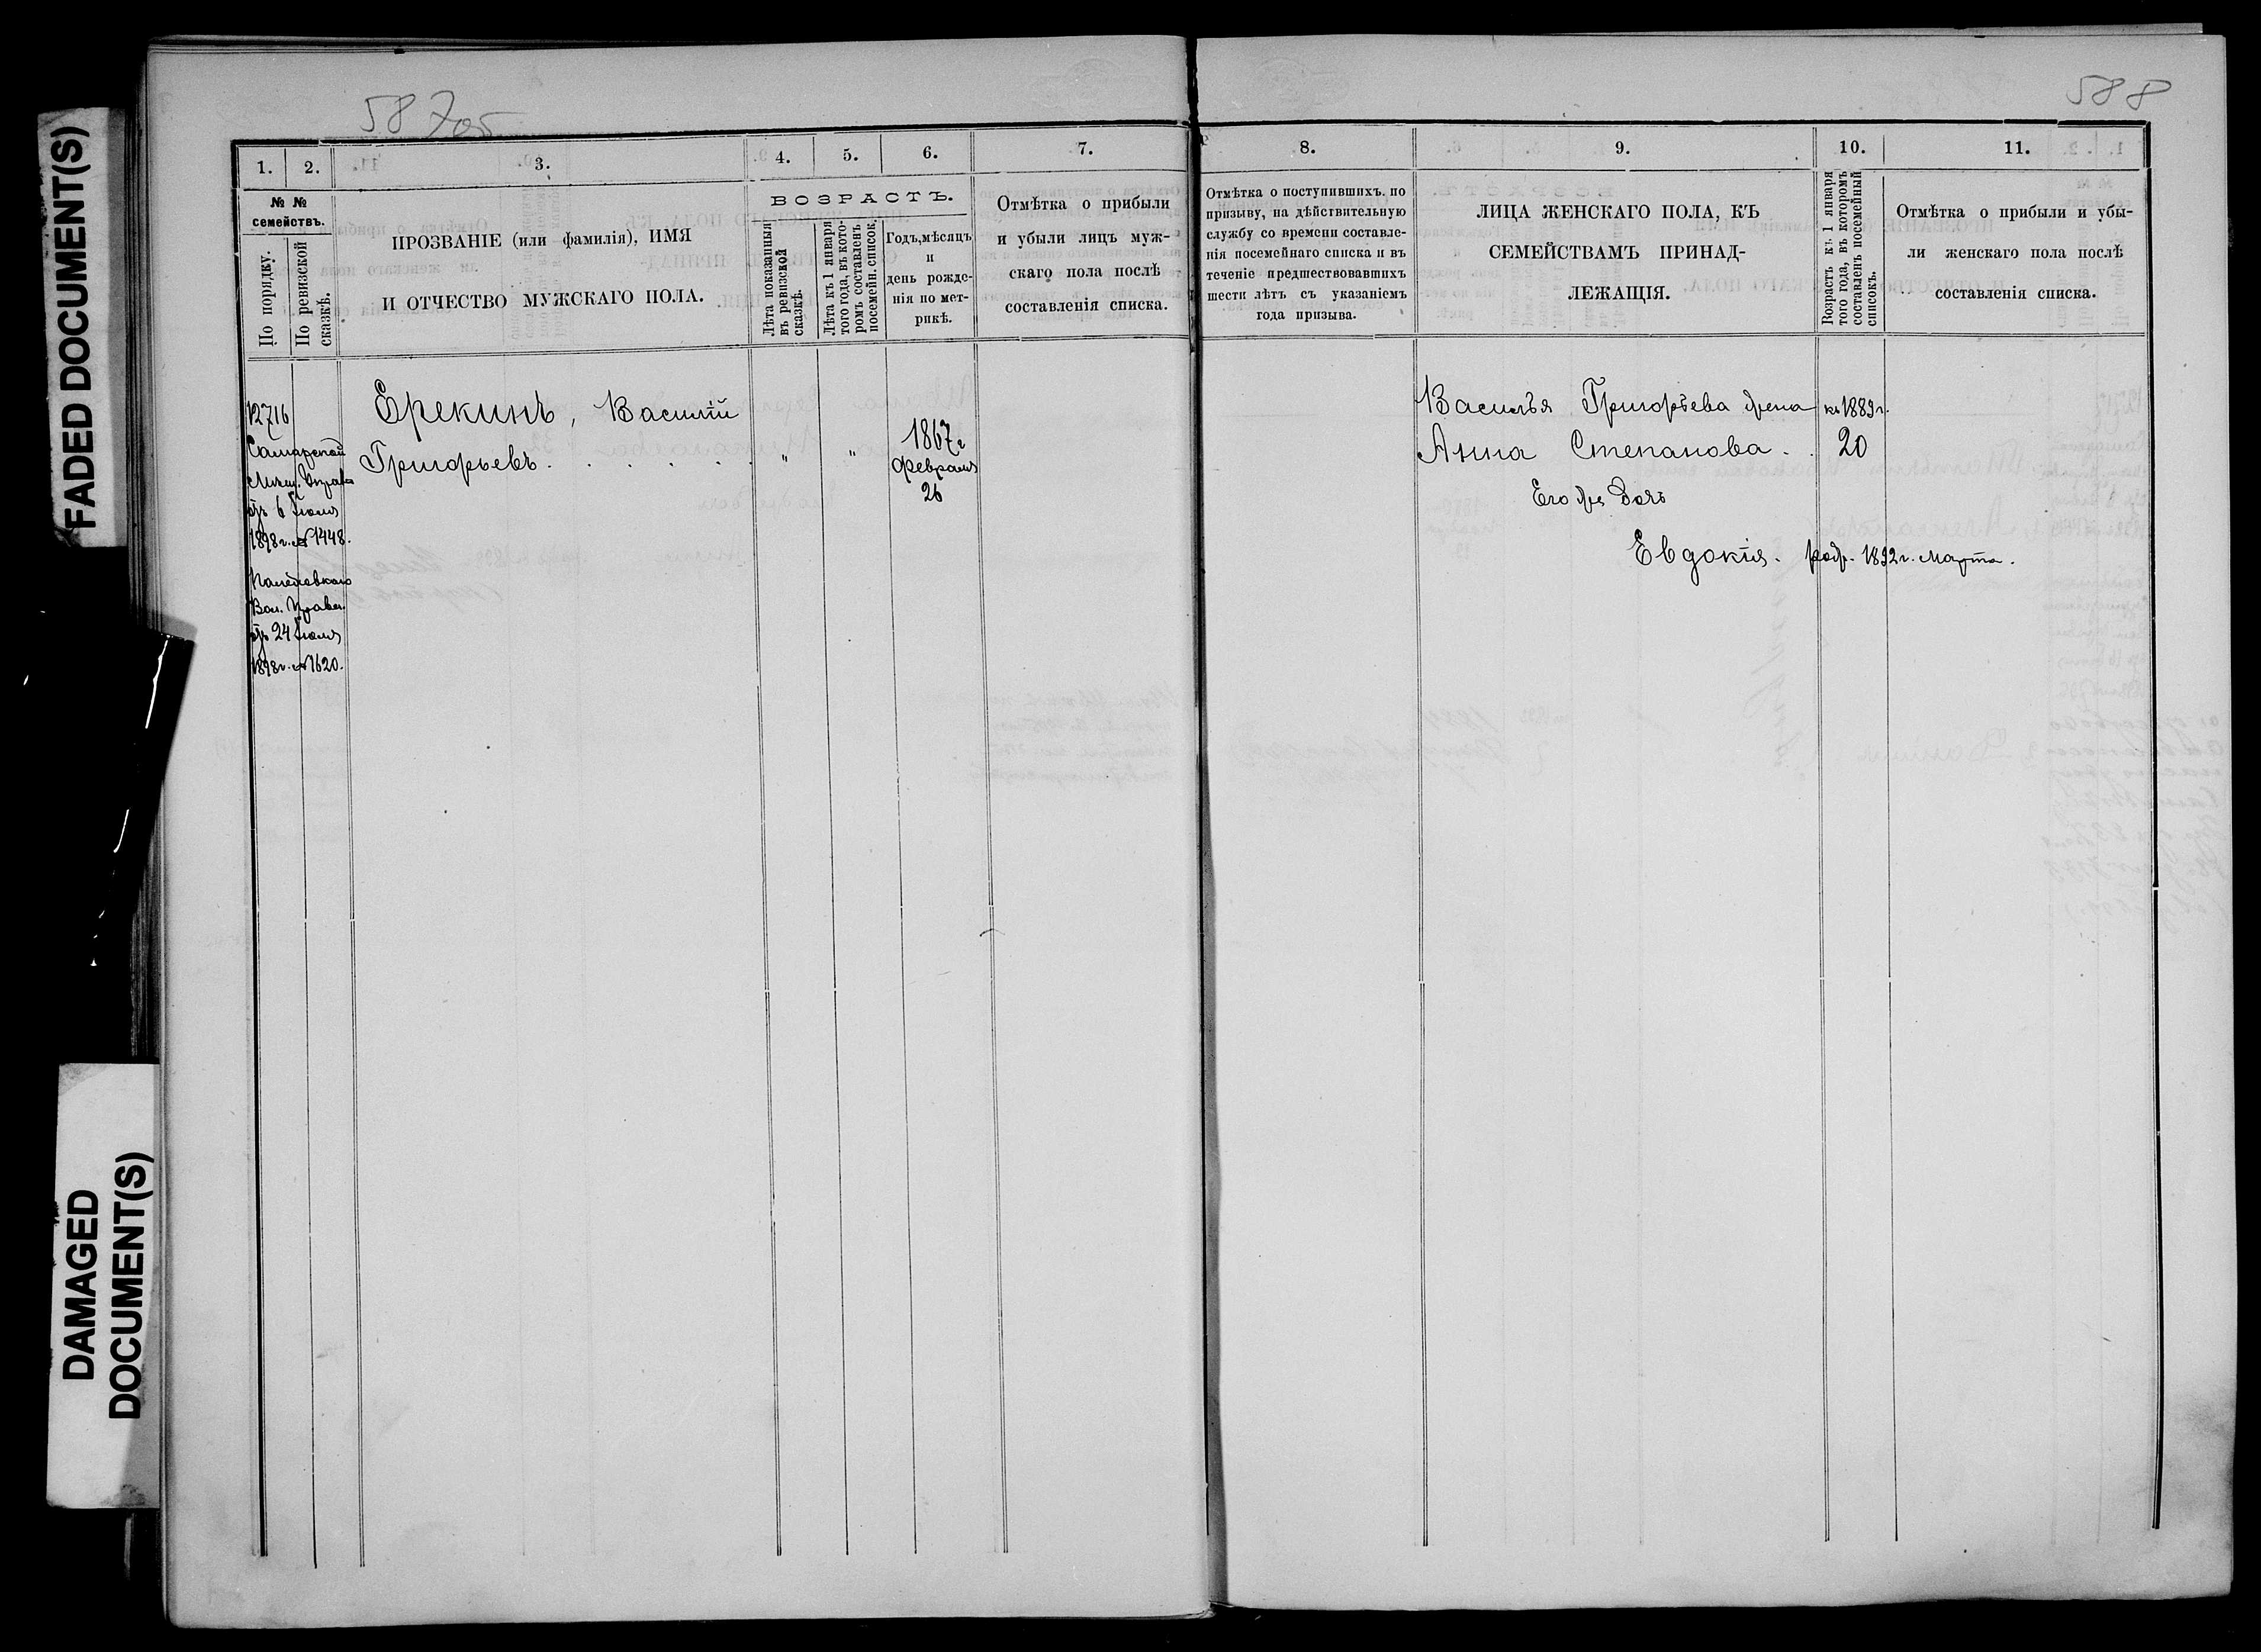 FADED DOCUMENT(S)
DAMAGED
DOCUMENT(S)
587об
588
1. 2. 3. 4. 5. 6. 7.
№ №
семействъ.
По порядку.
По ревизской
сказкѣ.
ПРОЗВАНІЕ (или фамилія), ИМЯ
И ОТЧЕСТВО МУЖСКАГО ПОЛА.
ВОЗРАСТЪ.
Лѣта показанныя
въ ревизской
сказкѣ.
Лѣта къ 1 января
того года, въ кото-
ромъ составленъ
посемейн. список.
Годъ, мѣсяцъ
и
день рожде-
нія по мет-
рикѣ.
Отмѣтка о прибыли
и убыли лицъ муж-
скаго пола послѣ
составленія списка.
12716
Самарской
Мѣщ. Управ
отъ 6 Іюля
1898 г. № 1448.
Вол. Правл.
отъ 24 Іюля
1898 г. № 1620.
Ерекинъ, Василій
Григорьевъ . . . . . " "
1867 г
Февраля
26
8. 9. 10. 11.
Отмѣтка о поступившихъ. по
призыву, на дѣйствительную
службу со времени составле-
нія посемейнаго списка и въ
теченіе предшествовавшихъ
шести лѣтъ съ указаніемъ
года призыва.
ЛИЦА ЖЕНСКАГО ПОЛА, КЪ
СЕМЕЙСТВАМЪ ПРИНАД-
ЛЕЖАЩІЯ.
Возрастъ къ 1 января
того года, въ которомъ
составленъ посемейный
списокъ.
Отмѣтка о прибыли и убы-
ли женскаго пола послѣ
составленія списка.
Василья Григорьева жена къ 1889 г.
Анна Степанова . . 20
Его же дочь
Евдокія. рожд. 1892 г. Марта.